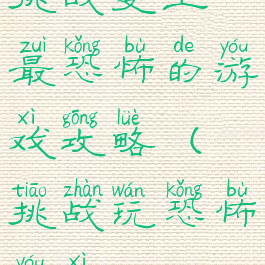 挑战史上
zuì kǒng bù de yóu
最恐怖的游
xì gōng lüè
戏攻略（
tiāo zhàn wán kǒng bù
挑战玩恐怖
yóu xì